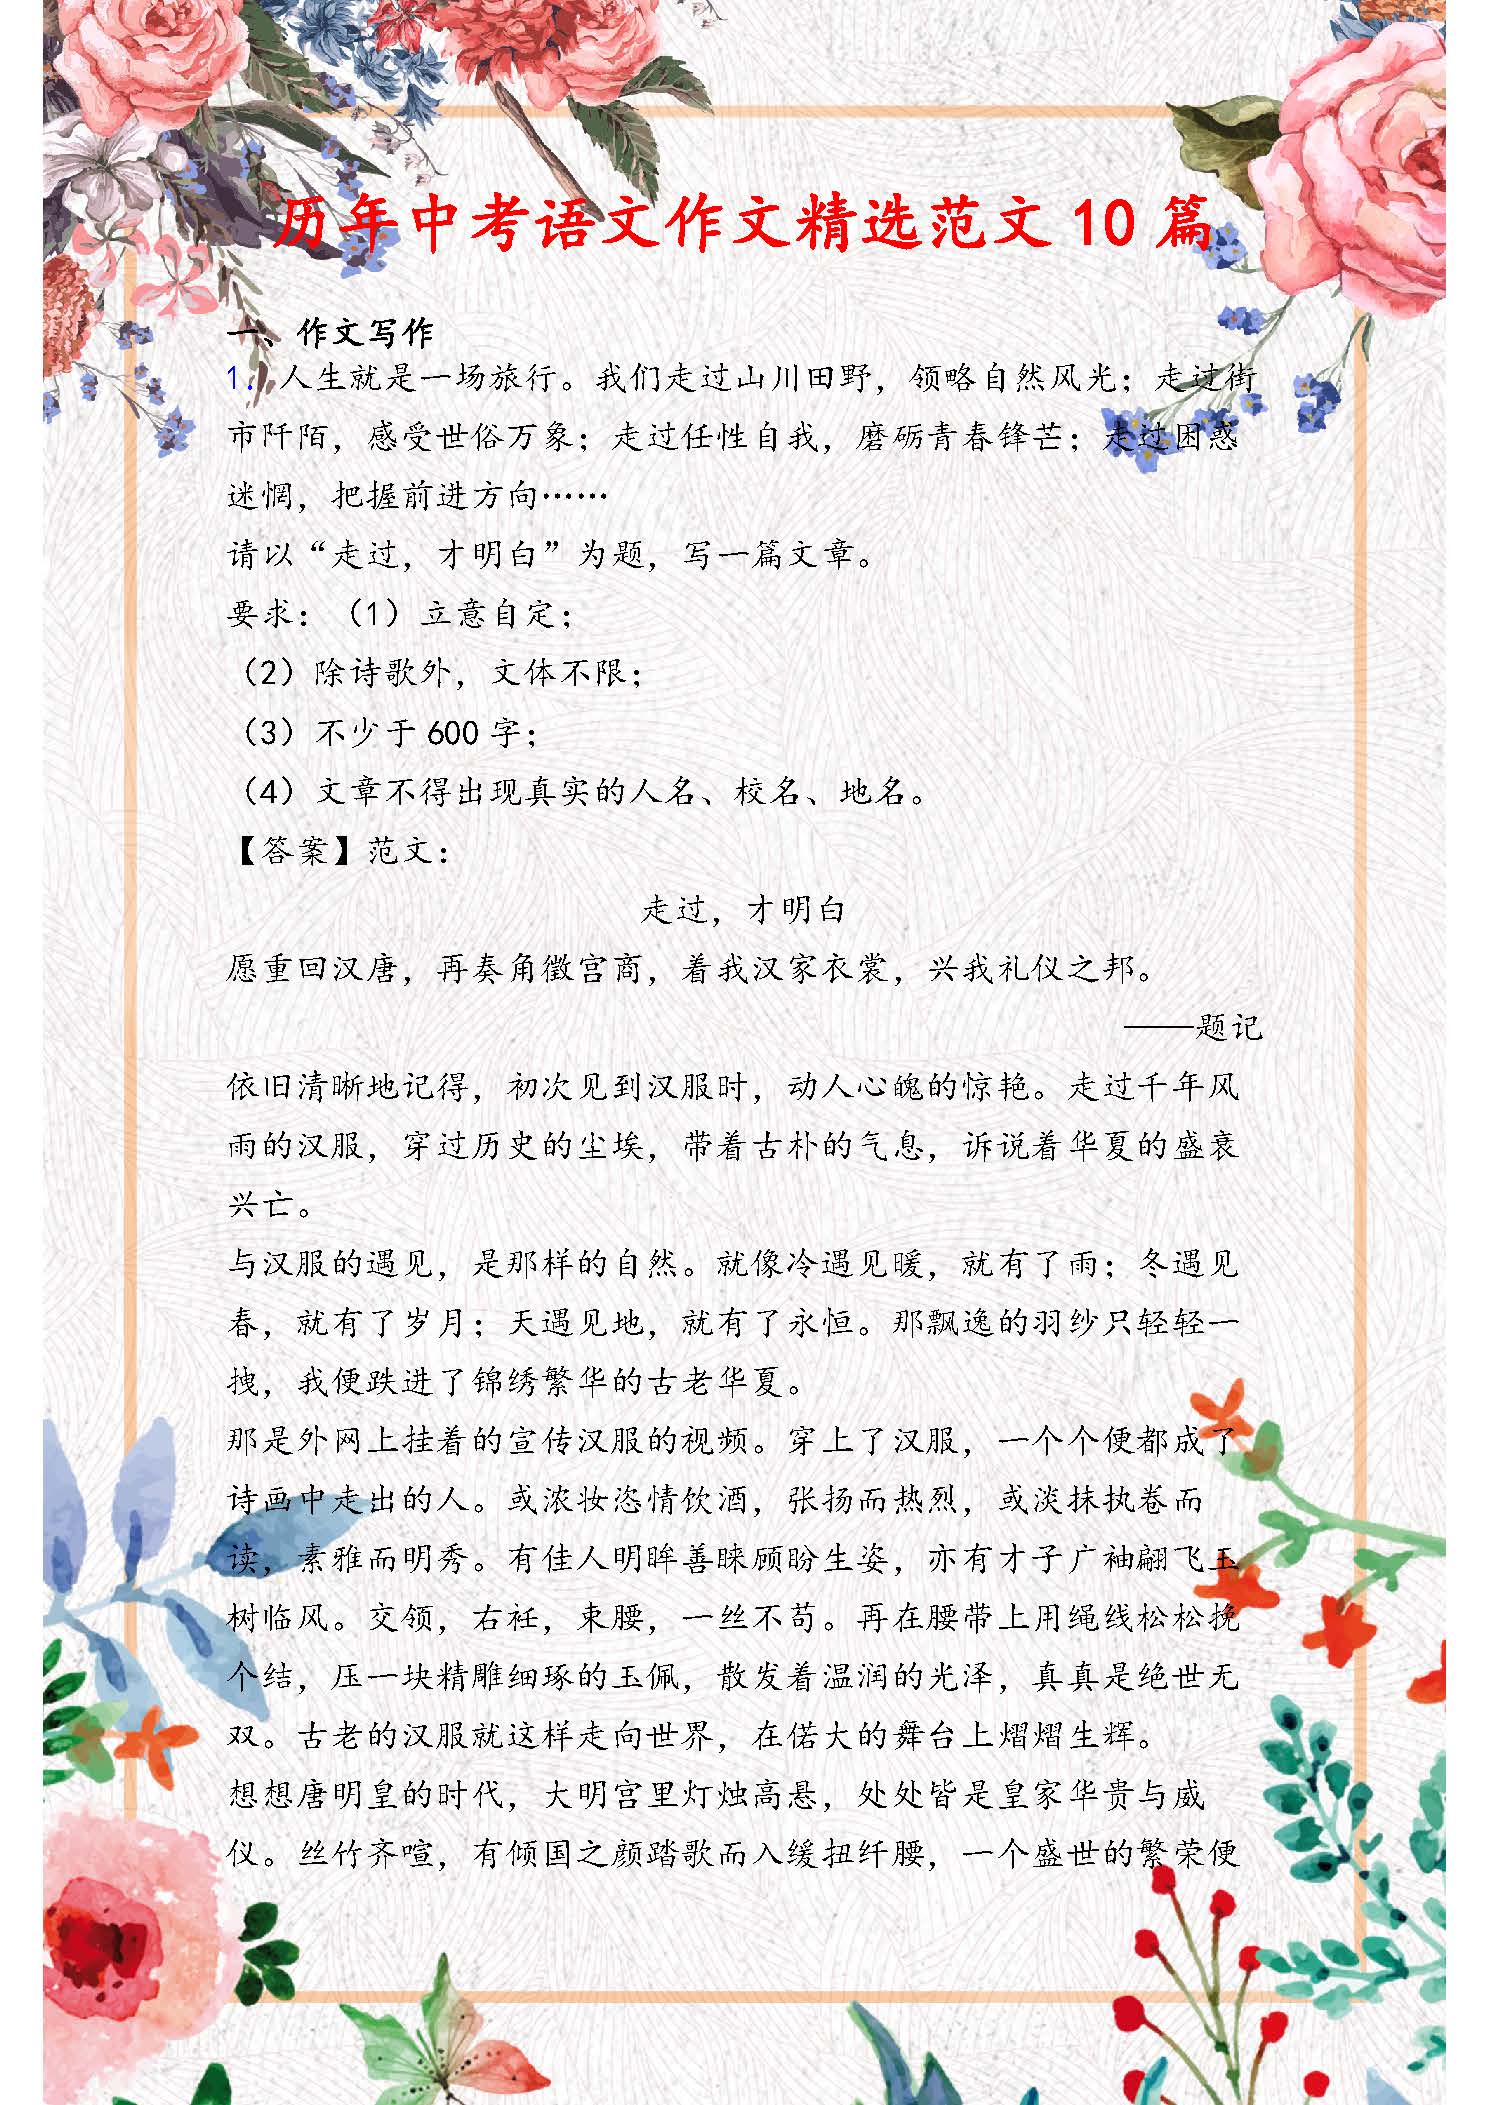 历年中考语文作文精选范文10篇
一、作文写作
1．人生就是一场旅行。我们走过山川田野，领略自然风光；走过街
市阡陌，感受世俗万象；走过任性自我，磨砺青春锋芒；走过困惑
迷惘，把握前进方向……
请以“走过，才明白”为题，写一篇文章。
要求：（1）立意自定；
（2）除诗歌外，文体不限；
（3）不少于600字；
（4）文章不得出现真实的人名、校名、地名。
【答案】范文：
走过，才明白
愿重回汉唐，再奏角徵宫商，着我汉家衣裳，兴我礼仪之邦。
——题记
依旧清晰地记得，初次见到汉服时，动人心魄的惊艳。走过千年风
雨的汉服，穿过历史的尘埃，带着古朴的气息，诉说着华夏的盛衰
兴亡。
与汉服的遇见，是那样的自然。就像冷遇见暖，就有了雨；冬遇见
春，就有了岁月；天遇见地，就有了永恒。那飘逸的羽纱只轻轻一
拽，我便跌进了锦绣繁华的古老华夏。
那是外网上挂着的宣传汉服的视频。穿上了汉服，一个个便都成了
诗画中走出的人。或浓妆恣情饮酒，张扬而热烈，或淡抹执卷而
读，素雅而明秀。有佳人明眸善睐顾盼生姿，亦有才子广袖翩飞玉
树临风。交领，右衽，束腰，一丝不苟。再在腰带上用绳线松松挽
个结，压一块精雕细琢的玉佩，散发着温润的光泽，真真是绝世无
双。古老的汉服就这样走向世界，在偌大的舞台上熠熠生辉。
想想唐明皇的时代，大明宫里灯烛高悬，处处皆是皇家华贵与威
仪。丝竹齐喧，有倾国之颜踏歌而入缓扭纤腰，一个盛世的繁荣便